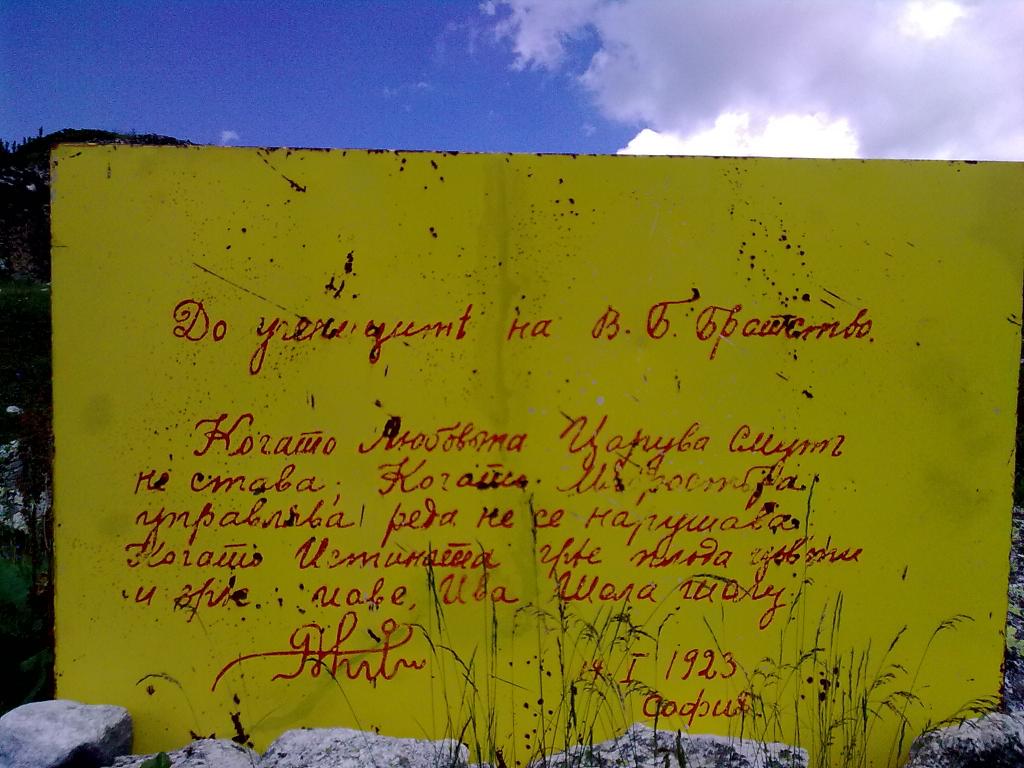 До ученицитѣ на В. Б. Братство.
Когато Любовьта Царува смутъ
не става; Когато Мѫдростьта
управлява реда не се нарушава
Когато Истината грѣе плода цъвти
и зрѣе. Ива Шала
I 1923
София